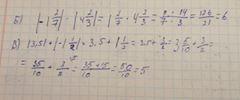 Б) |-1 2/7| · |4 2/3| = 1 2/7 · 4 2/3 = 9/7 · 14/3 = 126/21 = 6
В) |3,5| + |-1 1/2| = 3,5 + |1 1/2 = 3,5 + 3/2 = 3 5/10 + 3/2 =
= 35/10 + 3/2 = 35+15/10 = 50/10 = 5